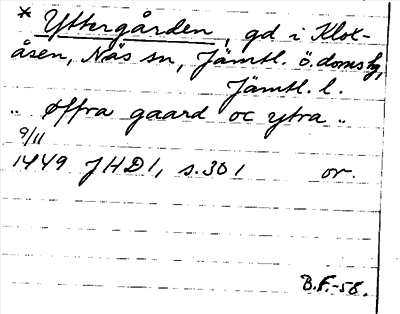 * Yttergården, gd i Klox-
åsen, Näs sn, Jämtl. ö. doms hg,
Jämtl. l.
„ øffra gaard oc ytra „
9/11
1449 JHD 1, s. 301 or.
B.F.-58.